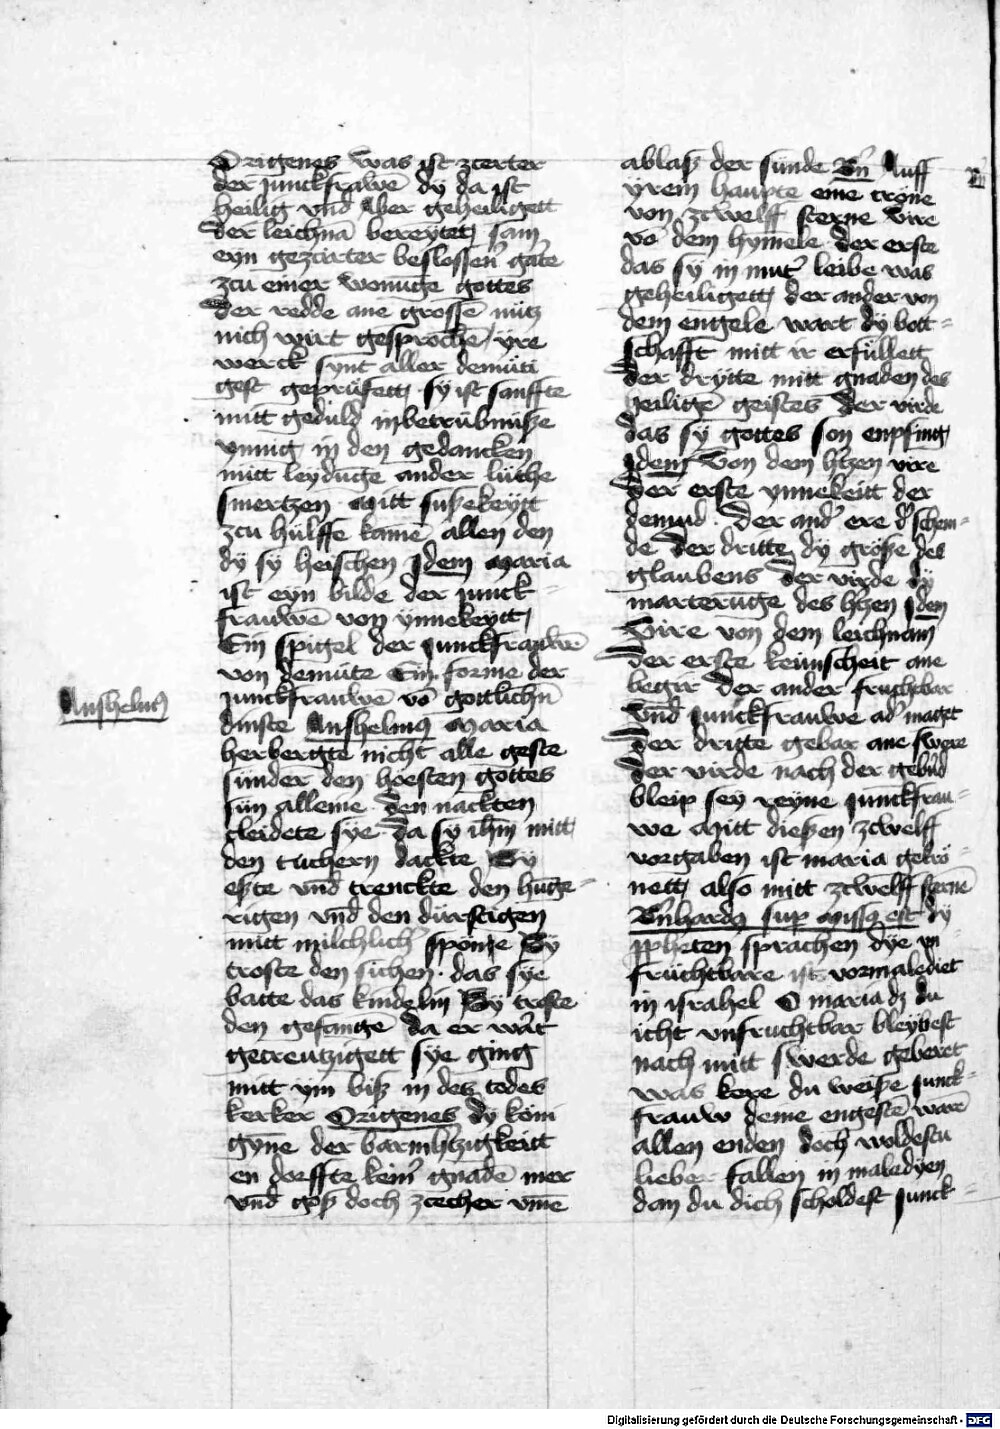 Origenes was ist zcerter
der junckfrawē dy da ist
heilig vnd aber geheiligett
der leichnā bereytet sam
eyn gezcirter beslossen gate
zcu einer wonūge gottes
der redde ane grossē nutz
nich wirt gesprochē yre
werck synt aller demuti
gest geprufett sy ist sanffte
mitt geduld in betrubnusze
ynnig in den gedancken
mitt leydūge ander luthe
smertzen mitt suszekeytt
zcu hulffe kamē allen den
dy sy heischen Idem Maria
ist eyn bilde der junck-
frauwē von ynnekeytt
Ein spigel der junckfrauwē
von demute Ein forme der
junckfrauwē vō gottlichn̄
dinste Anshelmus Maria
Anshelmus
herbergte nicht alle geste
sunder den hoesten gottes
sun alleine den nackten
cleidete sye da sy ihm mitt
den tuchern dackte Sy
eszte vnd trenckte den hūge-
rigen vnd den durftigen
mitt milchlicher sponie Sy
troste den sichen das sye
batte das kindelin Sy troste
den gefangē da er wart
gecreutzigett sye ging
mitt ym bisz in des todes
kerker Origenes dy koni
gyne der barmhtzigkeitt
en dorffte keinr gnade mer
vnd gosz doch zcecher vmē
ablasz der sunde Bn̄ Auff
Bn̄
yrem haupte eine crone
von zcwelff sterne vire
vō dem hymele der erste
das sy in mutr leibe was
geheiligett der ander von
dem engele wart dy bott-
schafft mitt ir erfullett
der drytte mitt gnaden des
heiligē geistes der virde
das sy gottes son enpfing
Idem von dem htzen vire
der erste ynnekeitt der
demud der andr ere dr schem-
de der dritte dy grosze des
glaubens der virde dy
marterūge des htzen Idem
Vire von dem leichnam
der erste keuischeit ane
begir der ander fruchtbar
vnd junckfrauwe adr maget
der dritte gebar ane swere
der virde nach der geburd
bleip sey reyne junckfrau-
we mitt dieszen zcwelff
vorgaben ist maria gekro-
nett also mitt zcwelff sternē
Bn̄hardus supr Missus est dy
ppheten sprachen dye vn-
fruchtbare ist vormalediet
in israhel O maria dz du
icht vnfruchtbar bleybest
nach mitt swerde geberet
was kere du weisze junck-
frauw deine engestē warē
allen enden doch woldestu
lieber fallen in maledyen
dan du dich scholdest junck-
Digitalisierung gefördert durch die Deutsche Forschungsgemeinschaft - DFG